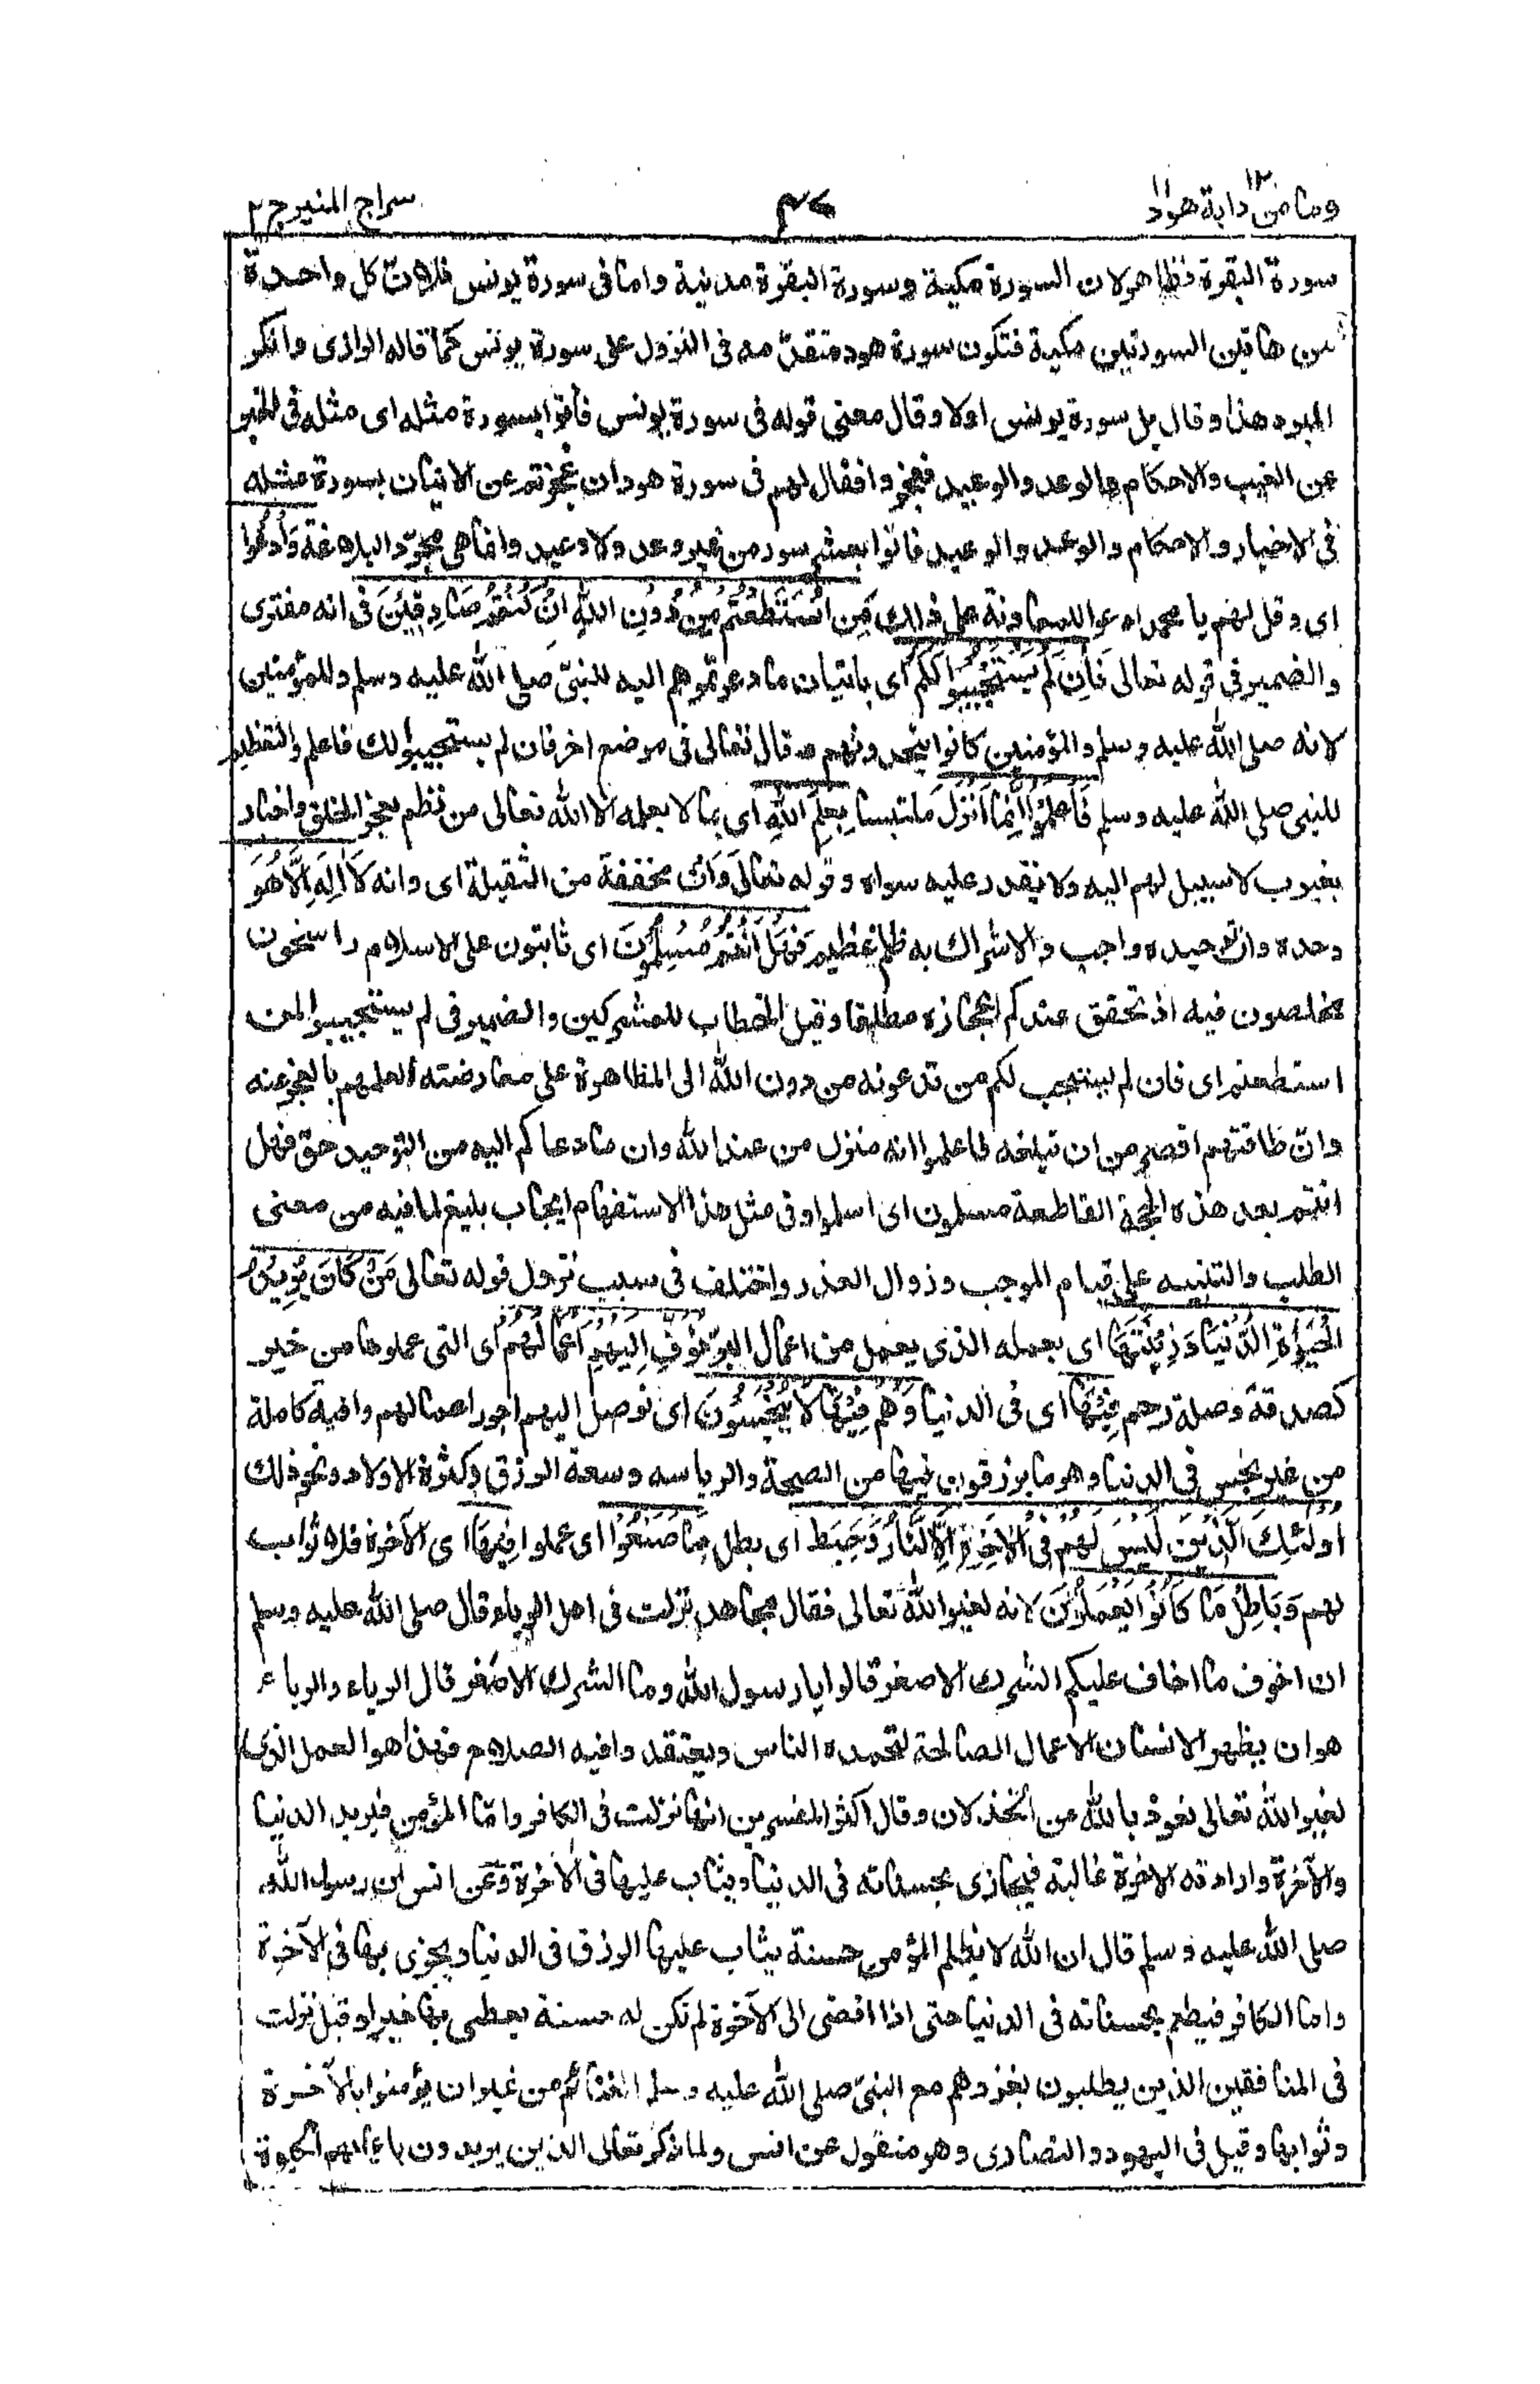 وما من دابة ١٢ هود ١١
٤٧
سراج المنير ج ٢
سورة البقرة فظاهر لان السورة مكية وسورة البقرة مدنية واما فى سورة يونس فلان كل واحدة
من هاتين السورتين مكية فتكون سورة هود متقدمه فى النزول على سورة يونس كما قاله الرازى وانكر
المبرد هذا وقال بل سورة يونس اولا وقال معنى قوله فى سورة يونس فأتوا بسورة مثله اى مثله فى الخبر
عن الغيب والاحكام والوعد والوعيد فعجزوا فقال لهم فى سورة هود ان عجزتم عن الاتيان بسورة مثله
فى الاخبار والاحكام والوعد والوعيد فاتوا بعشر سور من غير وعد ولا وعيد وانما هى مجرد البلاغة وَادْعُوا
اى وقل لهم يا محمد ادعوا للمعاونة على ذلك مَنِ اسْتَطَعْتُمْ مِنْ دُونِ اللهِ اِنْ كُنْتُمْ صَادِقِيْنَ فى انه مفترى
والضمير فى قوله تعالى فَاِنْ لَمْ يَسْتَجِيْبُوْا لَكُمْ اى باتيان ما دعوتموهم اليه للنبىّ صلى الله عليه وسلم وللمؤمنين
لانه صلى الله عليه وسلم والمؤمنين كانوا يتحدونهم وقال تعالى فى موضع اخر فان لم يستجيبوا لك فاعلم والتعظيم
للنبى صلى الله عليه وسلم فَاعْلَمُوْا اَنَّمَا اُنْزِلَ ملتبسا بِعِلْمِ اللهِ اى بما لا يعلمه الا الله تعالى من نظم يعجز الخلق واخبار
بغيوب لا سبيل لهم اليه ولا يقدر عليه سواه وقوله تعالى وَاَنْ مخففة من الثقيلة اى وانه لَا اِلٰهَ اِلَّا هُوَ
وحده وان توحيده واجب والاشراك به ظلم عظيم فَهَلْ اَنْتُمْ مُسْلِمُوْنَ اى ثابتون على الاسلام راسخون
مخلصون فيه اذ تحقق عندكم اعجازه مطلقا وقيل الخطاب للمشركين والضمير فى لم يستجيبوا لمن
استطعتم اى فان لم يستجب لكم من تدعونه من دون الله الى المظاهرة على معارضته لعلمهم بالعجز عنه
وان طاقتهم اقصر من ان تبلغه فاعلموا انه منزل من عند الله وان ما دعاكم اليه من التوحيد حق فهل
انتم بعد هذه الحجة القاطعة مسلمون اى اسلموا وفى مثل هذا الاستفهام ايجاب بليغ لما فيه من معنى
الطلب والتنبيه على قيام الموجب وزوال العذر واختلف فى سبب نزول قوله تعالى مَنْ كَانَ يُرِيْدُ
الْحَيٰوةَ الدُّنْيَا وَزِيْنَتَهَا اى بعمله الذى يعمل من اعمال البرّ نُوَفِّ اِلَيْهِمْ اَعْمَالَهُمْ اى التى عملوها من خير
كصدقة وصلة رحم فِيْهَا اى فى الدنيا وَهُمْ فِيْهَا لَا يُبْخَسُوْنَ اى نوصل اليهم اجور اعمالهم وافية كاملة
من غير بخس فى الدنيا وهو ما يرزقون فيها من الصحة والرياسه وسعة الرزق وكثرة الاولاد ونحو ذلك
اُولٰئِكَ الَّذِيْنَ لَيْسَ لَهُمْ فِى الْاٰخِرَةِ اِلَّا النَّارُ وَحَبِطَ اى بطل مَا صَنَعُوْا اى عملوا فِيْهَا اى الآخرة فلا ثواب
لهم وَبَاطِلٌ مَا كَانُوْا يَعْمَلُوْنَ لانه لغير الله تعالى فقال مجاهد نزلت فى اهل الرياء وقال صلى الله عليه وسلم
ان اخوف ما اخاف عليكم الشرك الاصغر قالوا يا رسول الله وما الشرك الاصغر قال الرياء والرياء
هو ان يظهر الانسان الاعمال الصالحة لتحمده الناس ويعتقدوا فيه الصلاح فهذا هو العمل الذى
لغير الله تعالى نعوذ بالله من الخذلان وقال اكثر المفسرين انها نزلت فى الكافر واما المؤمن فيريد الدنيا
والآخرة وارادته الاخرة غالبة فيجازى بحسناته فى الدنيا ويثاب عليها فى الآخرة وعن انس ان رسول الله
صلى الله عليه وسلم قال ان الله لا يظلم المؤمن حسنة يثاب عليها الرزق فى الدنيا ويجزى بها فى الآخرة
واما الكافر فيطعم بحسناته فى الدنيا حتى اذا افضى الى الآخرة لم تكن له حسنة يعطى بها خيرا وقيل نزلت
فى المنافقين الذين يطلبون بغزوهم مع النبىّ صلى الله عليه وسلم الغنائم من غير ان يؤمنوا بالآخرة
وثوابها وقيل فى اليهود والنصارى وهو منقول عن انس ولما ذكر تعالى الذين يريدون باعمالهم الحيوة